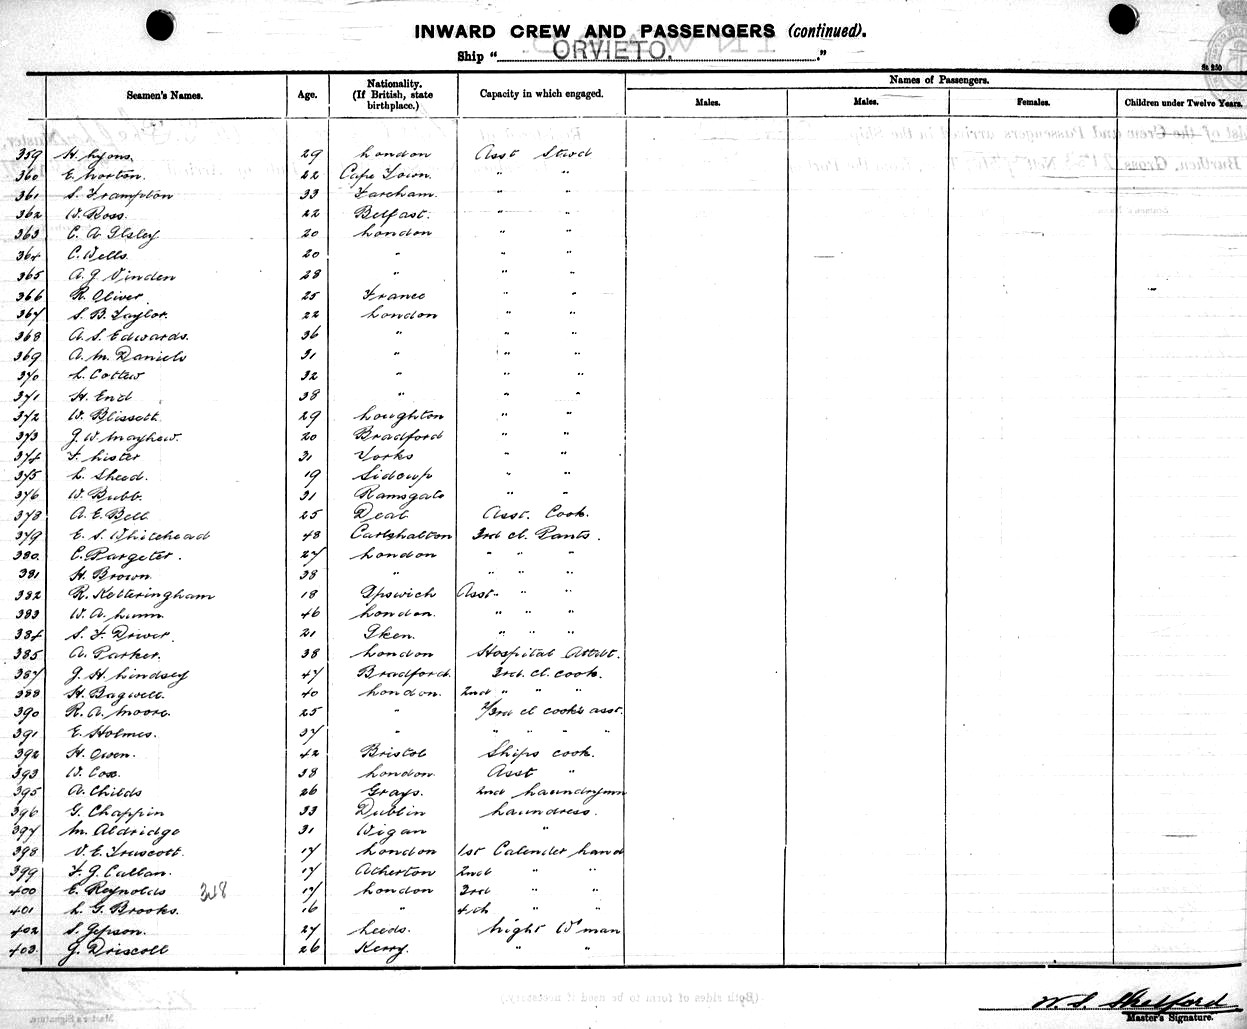 INWARD CREW AND PASSENGERS (continued).
Ship "ORVIETO."
Seamen's Names. Age. Nationality. (If British, state birthplace.) Capacity in which engaged. Names of Passengers.
Males. Males. Females. Children under Twelve Years.
359 H. Lyons. 29 London Asst Stwd
360 E. Norton. 22 Cape Town. " "
361 S. Frampton 33 Fareham. " "
362 W. Ross. 22 Belfast. " "
363 C. A Ilsley 20 London " "
364 C. Wells. 20 " " "
365 A. J Vinden 28 " " "
366 R. Oliver. 25 France " "
367 S. B. Taylor. 22 London " "
368 A. S. Edwards. 36 " " "
369 A. M. Daniels 31 " " "
370 L. Cottew 32 " " "
371 H. End 38 " " "
372 W. Blissett 29 Loughton " "
373 G. W. Mayhew. 20 Bradford " "
374 F. Lister 31 Yorks " "
375 L. Sheed. 19 Sidcup " "
376 W. Bubb. 31 Ramsgate " "
378 A. E. Bell 25 Deal Asst. Cook.
379 E. S. Whitehead 48 Carlshalton 3rd cl. Pants.
380. C. Pargeter. 27 London " " "
381 H. Brown. 38 " " " "
382 R. Ketteringham 18 Ipswich Asst. " "
383 W. A. Lunn. 46 London. " " "
384 S. F. Driver. 21 Iken. " " "
385 A. Parker. 38 London Hospital Attdt.
387 J. H. Lindsey 47 Bradford. 3rd. cl. cook.
388 H. Bagwell. 40 London. 2nd " " "
390 R. A. Moore. 25 " 2/3rd cl cook's asst.
391 E. Holmes. 37 " " " " "
392 H. Owen. 42 Bristol Ships cook.
393 W. Cox. 38 London. Asst "
395 A. Childs 26 Grays. 2nd Laundrymn
396 G. Chappin 33 Dublin Laundress.
397 M. Aldridge 31 Wigan "
398 V. E. Truscott. 17 London 1st Calender hand
399 F. J. Callan. 17 Atherton 2nd " "
400 E. Reynolds 318 17 London 3rd " "
401 L. G. Brooks. 16 " 4th " "
402 S. Jepson. 27 Leeds. Night W'man
403. J. Driscoll 26 Kerry. " "
W. S. Shelford
Master's Signature.